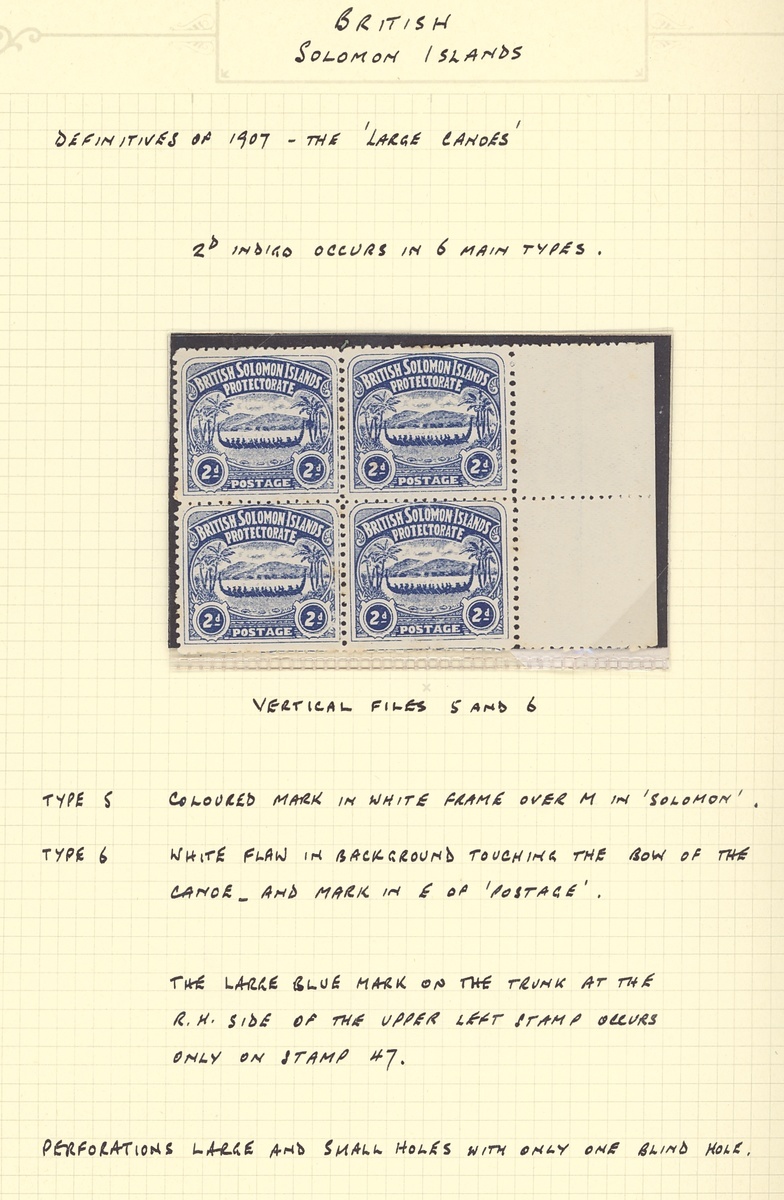 BRITISH
SOLOMON ISLANDS
DEFINITIVES OF 1907 - THE 'LARGE CANOES'
2D INDIGO OCCURS IN 6 MAIN TYPES.
BRITISH SOLOMON ISLANDS
PROTECTORATE
2d 2d
POSTAGE
BRITISH SOLOMON ISLANDS
PROTECTORATE
2d 2d
POSTAGE
BRITISH SOLOMON ISLANDS
PROTECTORATE
2d 2d
POSTAGE
BRITISH SOLOMON ISLANDS
PROTECTORATE
2d 2d
POSTAGE
VERTICAL FILES 5 AND 6
TYPE 5 COLOURED MARK IN WHITE FRAME OVER M IN 'SOLOMON'.
TYPE 6 WHITE FLAW IN BACKGROUND TOUCHING THE BOW OF THE
CANOE_ AND MARK IN E OF 'POSTAGE'.
THE LARGE BLUE MARK ON THE TRUNK AT THE
R.H. SIDE OF THE UPPER LEFT STAMP OCCURS
ONLY ON STAMP 47.
PERFORATIONS LARGE AND SMALL HOLES WITH ONLY ONE BLIND HOLE.